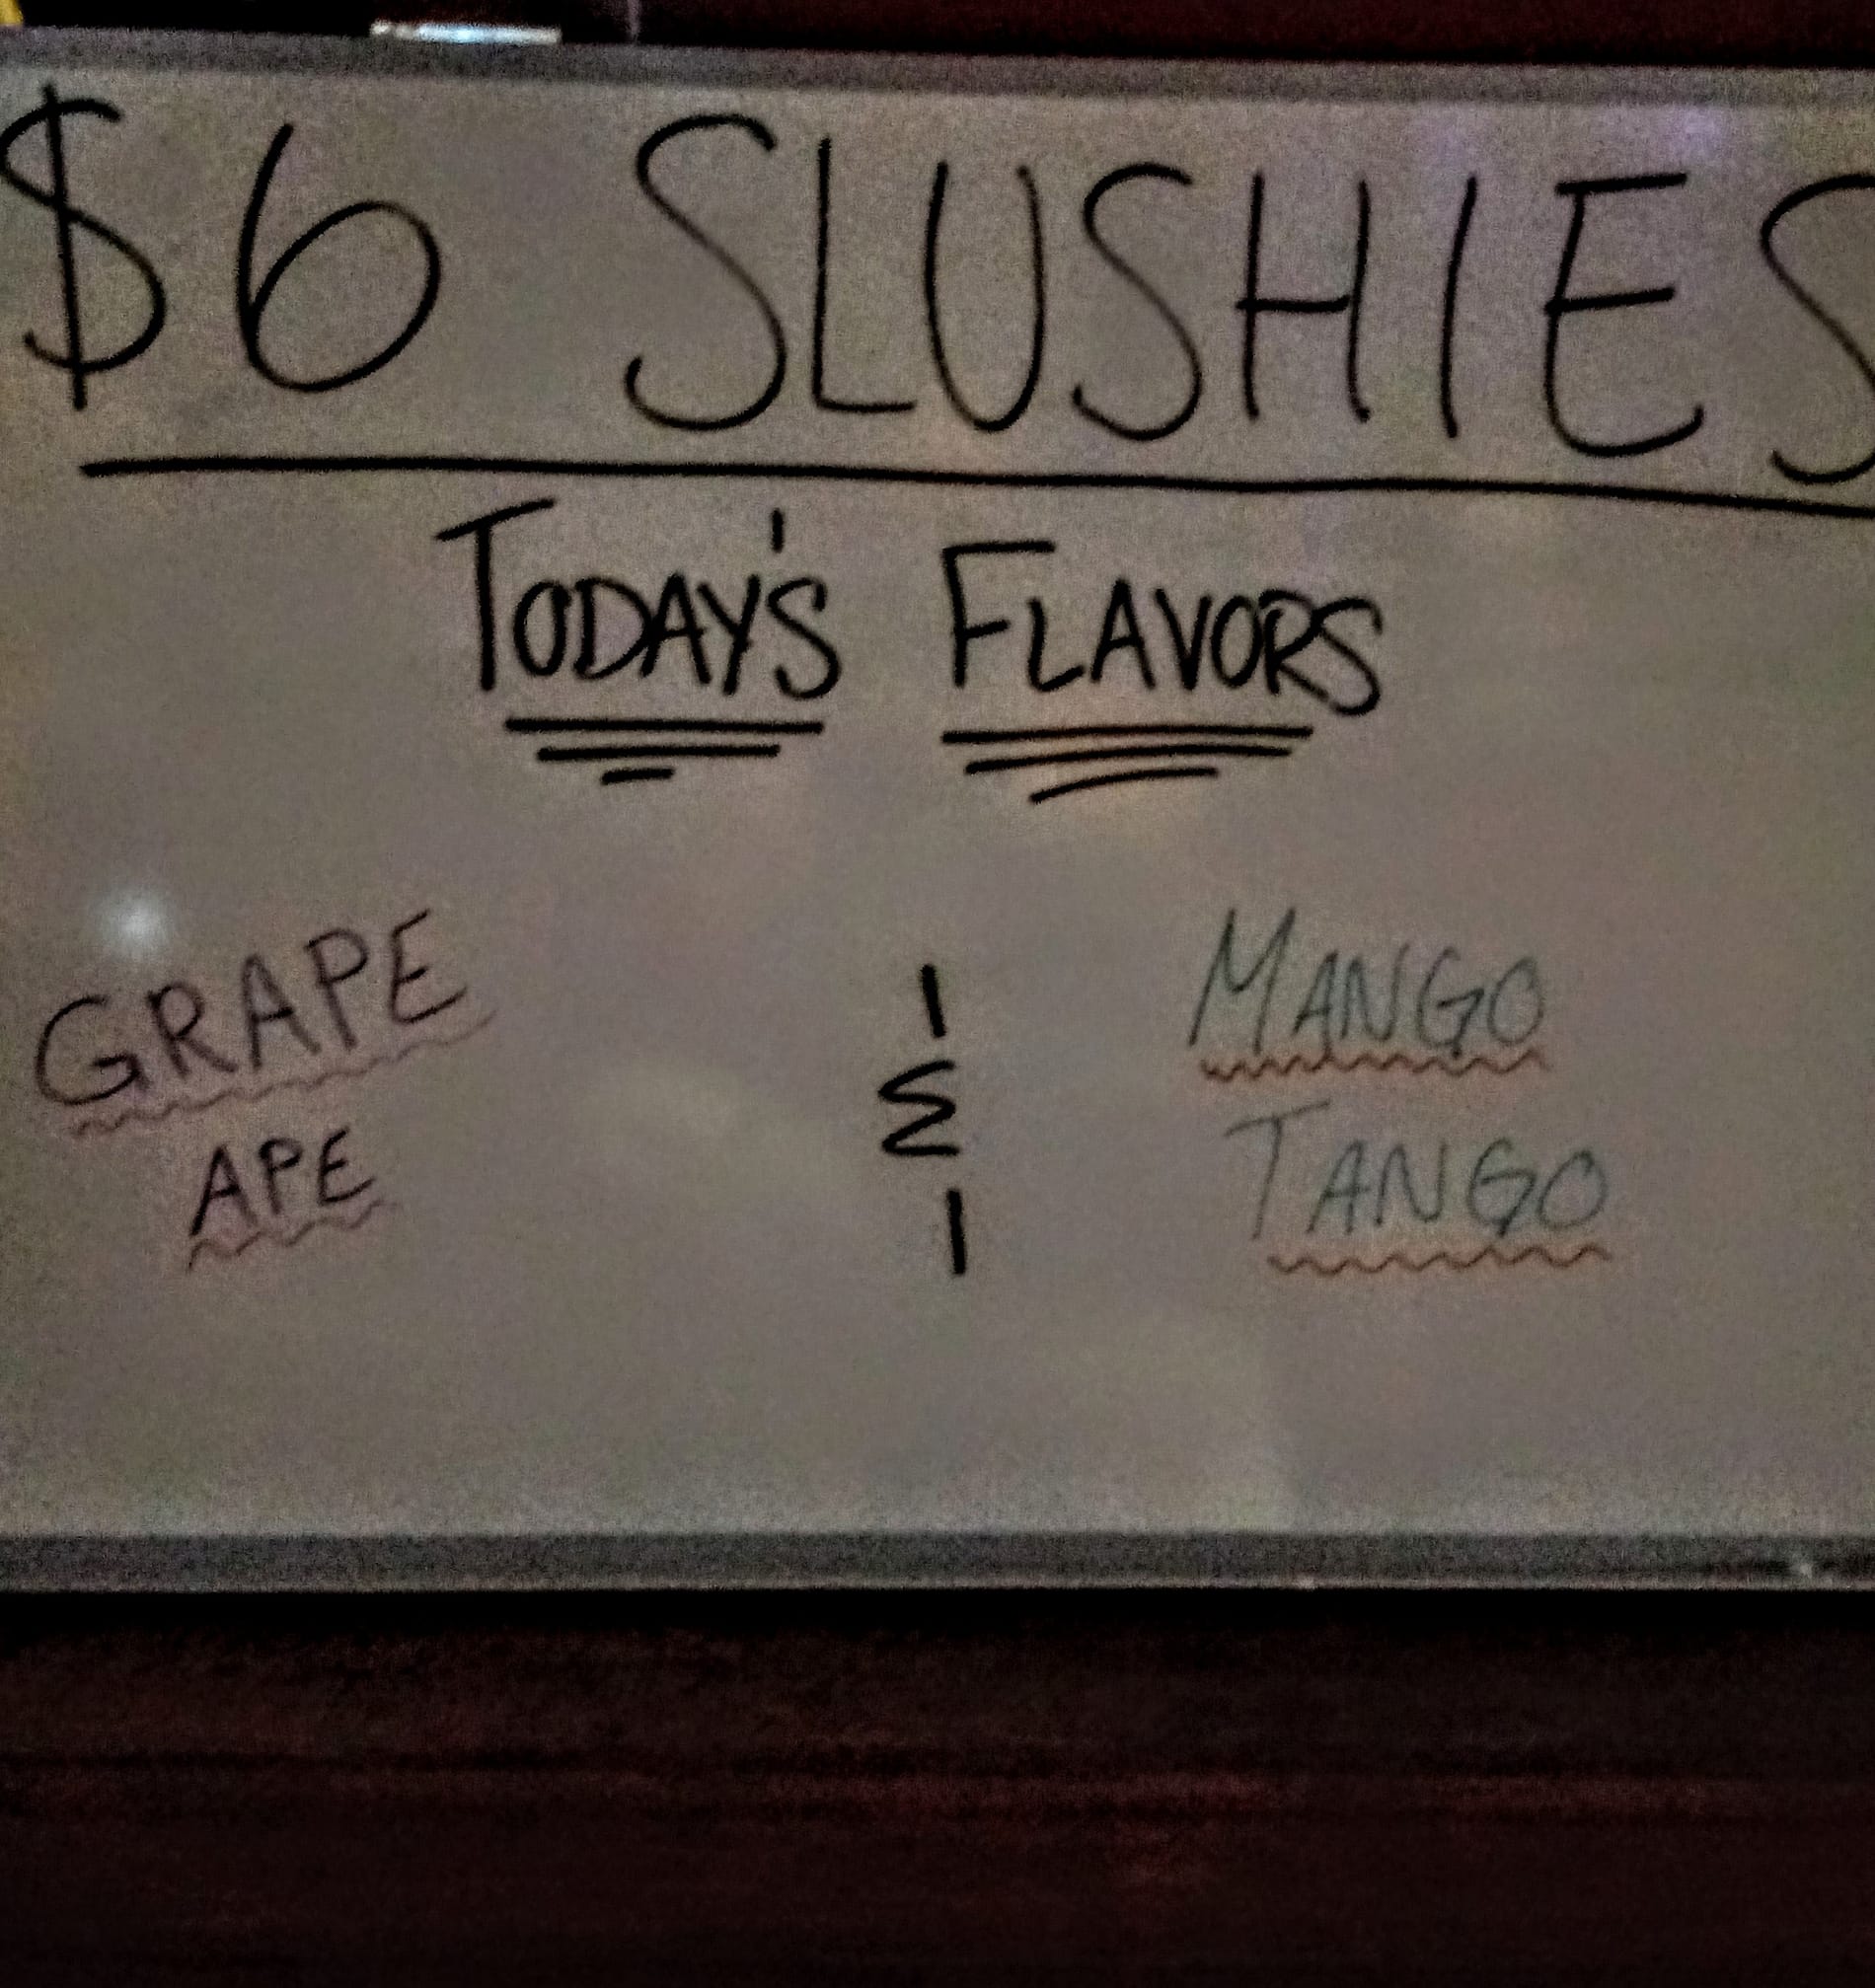 $6 SLUSHIES
TODAY'S FLAVORS
GRAPE
APE
&
MANGO
TANGO